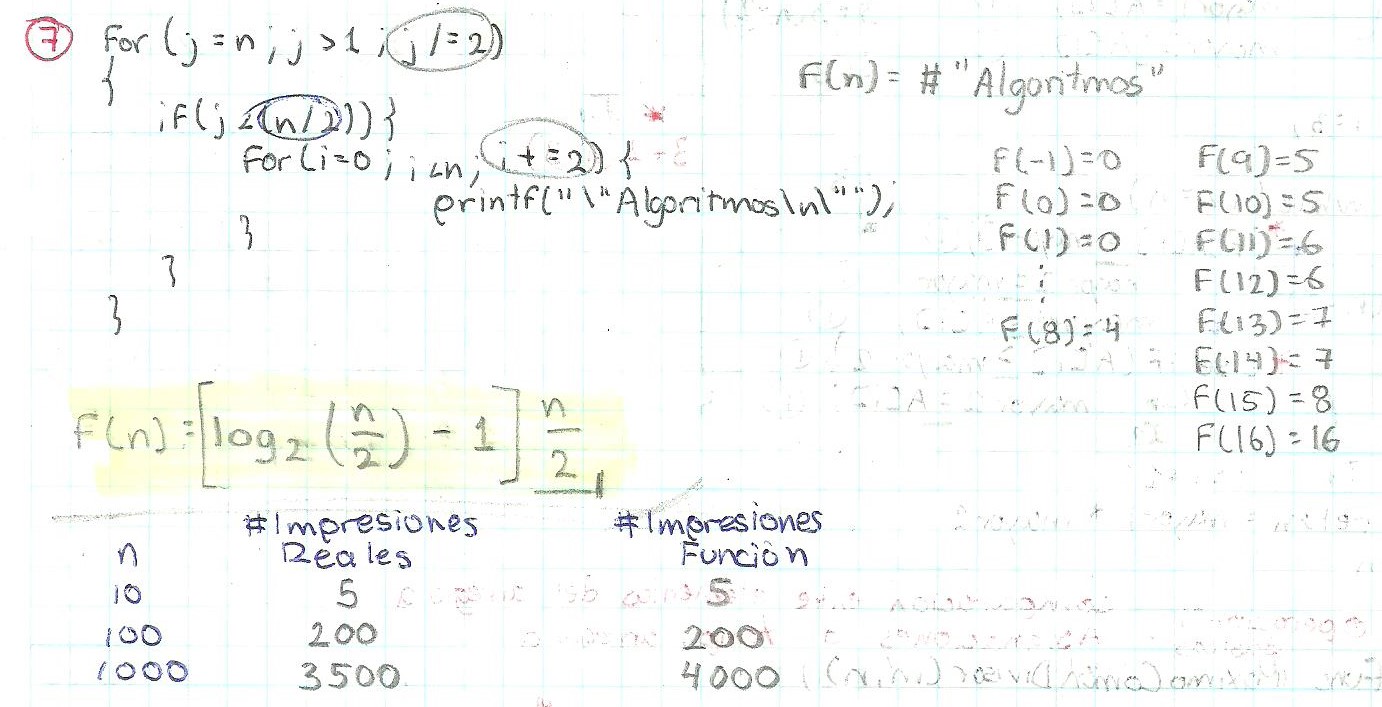 7 For (j=n; j>1; j/=2)
{
if(j<(n/2)){
For(i=0; i<n; i+=2){
printf("\"Algoritmos\n\"");
}
}
}
F(n)= # "Algoritmos"
F(-1)=0
F(0)=0
F(1)=0
⋮
F(8)=4
F(9)=5
F(10)=5
F(11)=6
F(12)=6
F(13)=7
F(14)=7
F(15)=8
F(16)=16
F(n)=[log₂(n/2) - 1] n/2
n #Impresiones Reales #Impresiones Función
10 5 5
100 200 200
1000 3500 4000